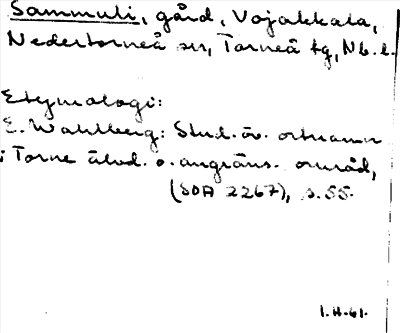 Sammuli, gård, Vojakkala,
Nedertorneå sn, Torneå tg, Nb. l.
Etymologi:
E. Wahlberg: Stud. öv. ortnamn
i Torne älvd. o. angräns. område,
(SOA 2267), s. 55.
1.H.61.